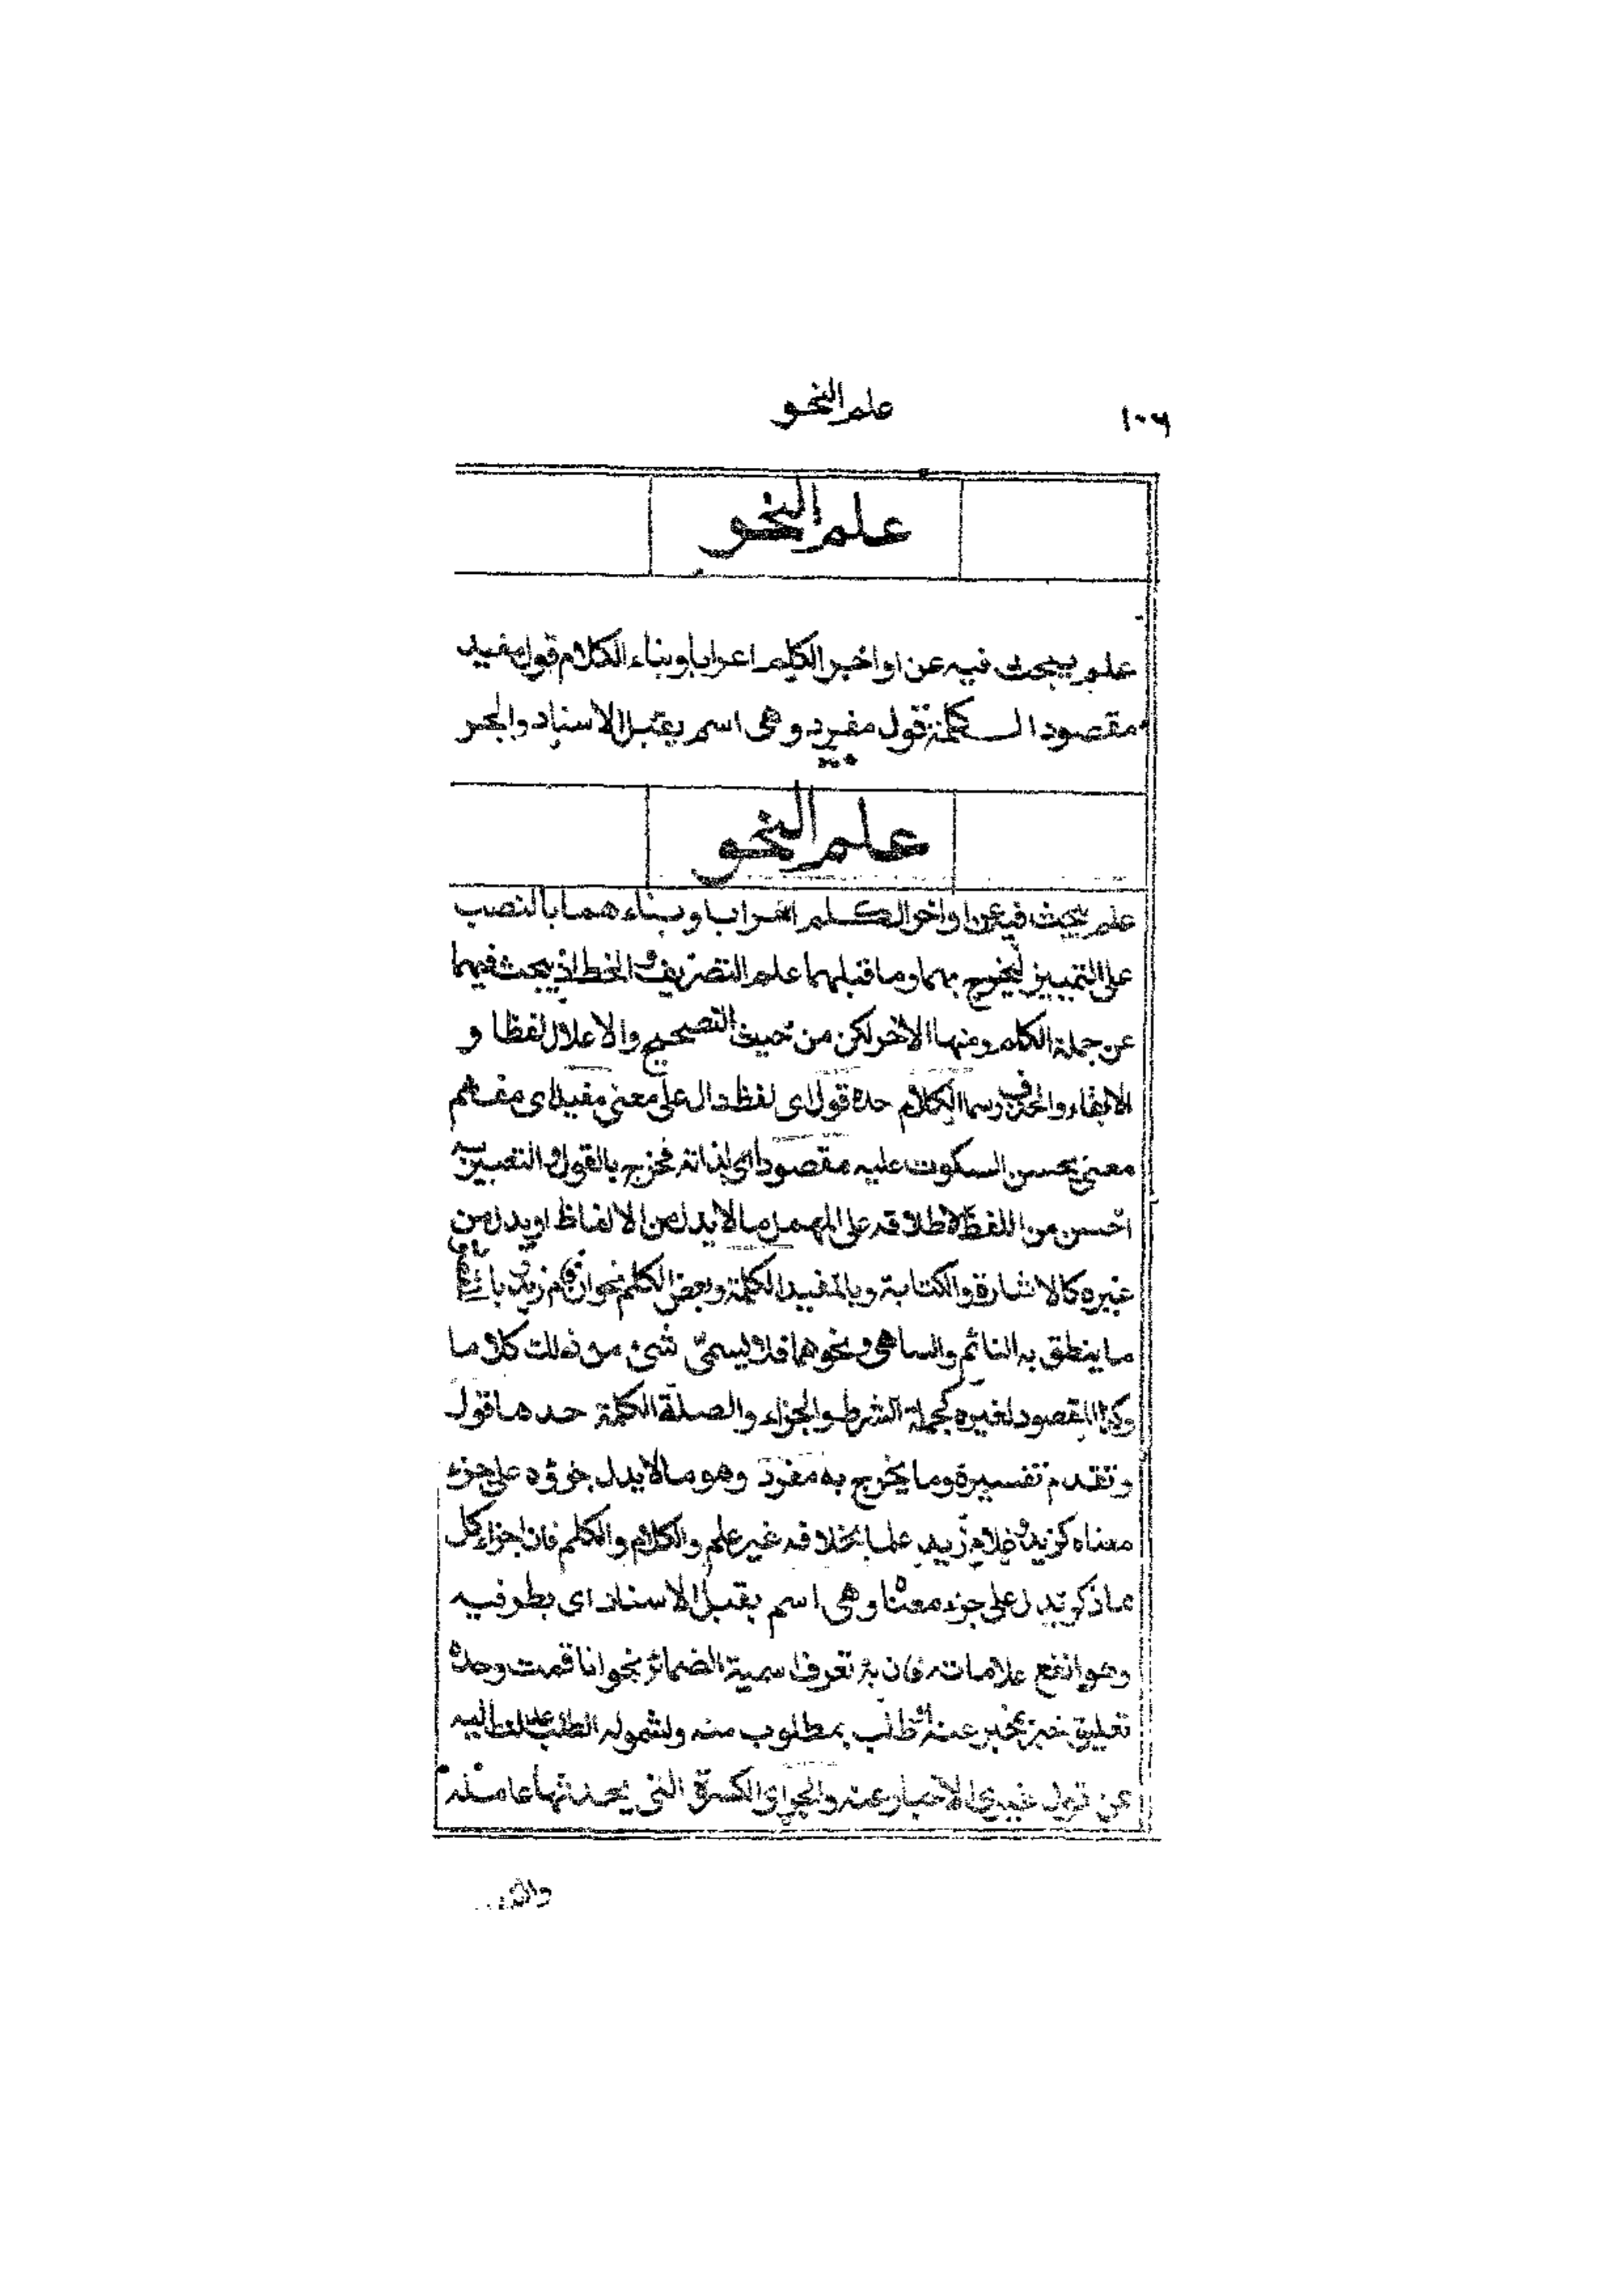 ١٠٦
علم النحو
علم النحو
علم يبحث فيه عن اواخر الكلم اعرابا وبناء الكلام قول مفيد
مقصود الكلمة قول مفرد وهى اسم يقبل الاسناد والجر
علم النحو
علم يبحث فيه عن اواخر الكلم اعرابا وبناء هما بالنصب
على التمييز ليخرج بهما وما قبلهما علم التصريف والخط اذ يبحث فيهما
عن جملة الكلم ومنها الاخر لكن من حيث التصحيح والاعلال لفظا و
الابقاء والحذف رسما الكلام حده قول اى لفظ دال على معنى مفيد اى مفهم
معنى يحسن السكوت عليه مقصود اى لذاته فخرج بالقول والتعبير به
احسن من اللفظ لاطلاقه على المهمل ما لا يدل من الالفاظ او يدل من
غيره كالاشارة والكتابة وبالمفيد الكلمة وبعض الكلم نحو ان قام زيد
ما ينطق به النائم والساهى ونحوهما فلا يسمى شئ من ذلك كلاما
وكذا المقصود لغيره كجملة الشرط والجزاء والصلة الكلمة حدها قول
وتقدم تفسيره وما يخرج به مفرد وهو ما لا يدل جزؤه على جزء
معناه كزيد وغلام زيد علما بخلافه غير علم والكلام والكلم فان اجزاء كل
ما ذكر تدل على جزء معناه وهى اسم يقبل الاسناد اى بطرفيه
وهو انفع علاماته فان به تعرف اسمية الضمائر نحو انا قمت وحده
تعليق خبر بمخبر عنه او طلب بمطلوب منه ولشموله الطلب
عن قول غيرى الاخبار عنه والجر اى الكسرة التى يحدثها عامله